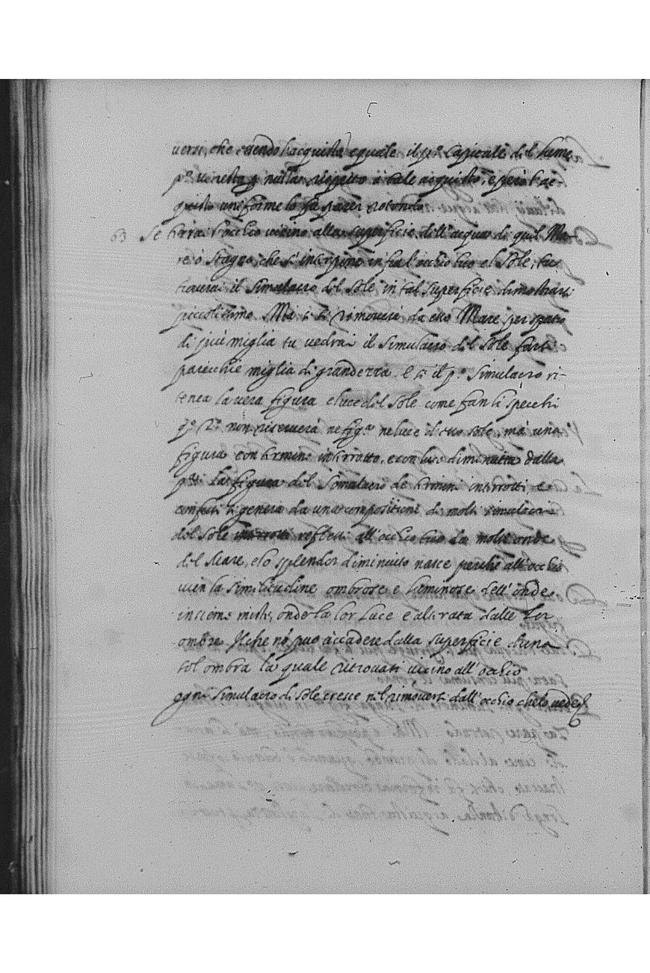 versi, che essendo l'acquista equale il p.º Capitale del lume
p.º vi resta q.º nulla, rispetto à tale acquisto, e però l'ac
quisto uniforme lo fa parer rotondo
63 Se terrai l'occhio vicino alla superficie dell'acqua di quel Ma
re, ò Stagno, che s'interpone infra l'occhio tuo e'l Sole, tu
troverai il Simulacro del Sole in tal superficie dimostrarsi
piccolissimo. Ma se ti rimovera da esso Mare per spatio
di più miglia tu vedrai il Simulacro del Sole farsi
parecchie miglia di grandezza. E se il p.º Simulacro ri-
tenea la vera figura e luce del Sole come fan li specchi
q.º 2.º non riserverà ne fig.ª ne luce d'esso sole, mà una
figura con termine interrotto, e con luce diminuita dalla
p.ª La figura del Simulacro de termini interrotti, e
confusi si genera da una compositione di molti simulacri
del Sole interrotti reflessi all'occhio tuo da molte onde
del Mare, e lo splendor diminuito nasce perche all'occhio
vien la similitudine ombrose e luminose dell'onde
insieme miste, onde la lor Luce e alterata dalle lor
ombre. Il che nō può accadere dalla superficie d'una
sol ombra la quale ritrovasi vicino all'occhio
ogni simulacro di sole cresce nel rimoversi dall'occhio che lo vede